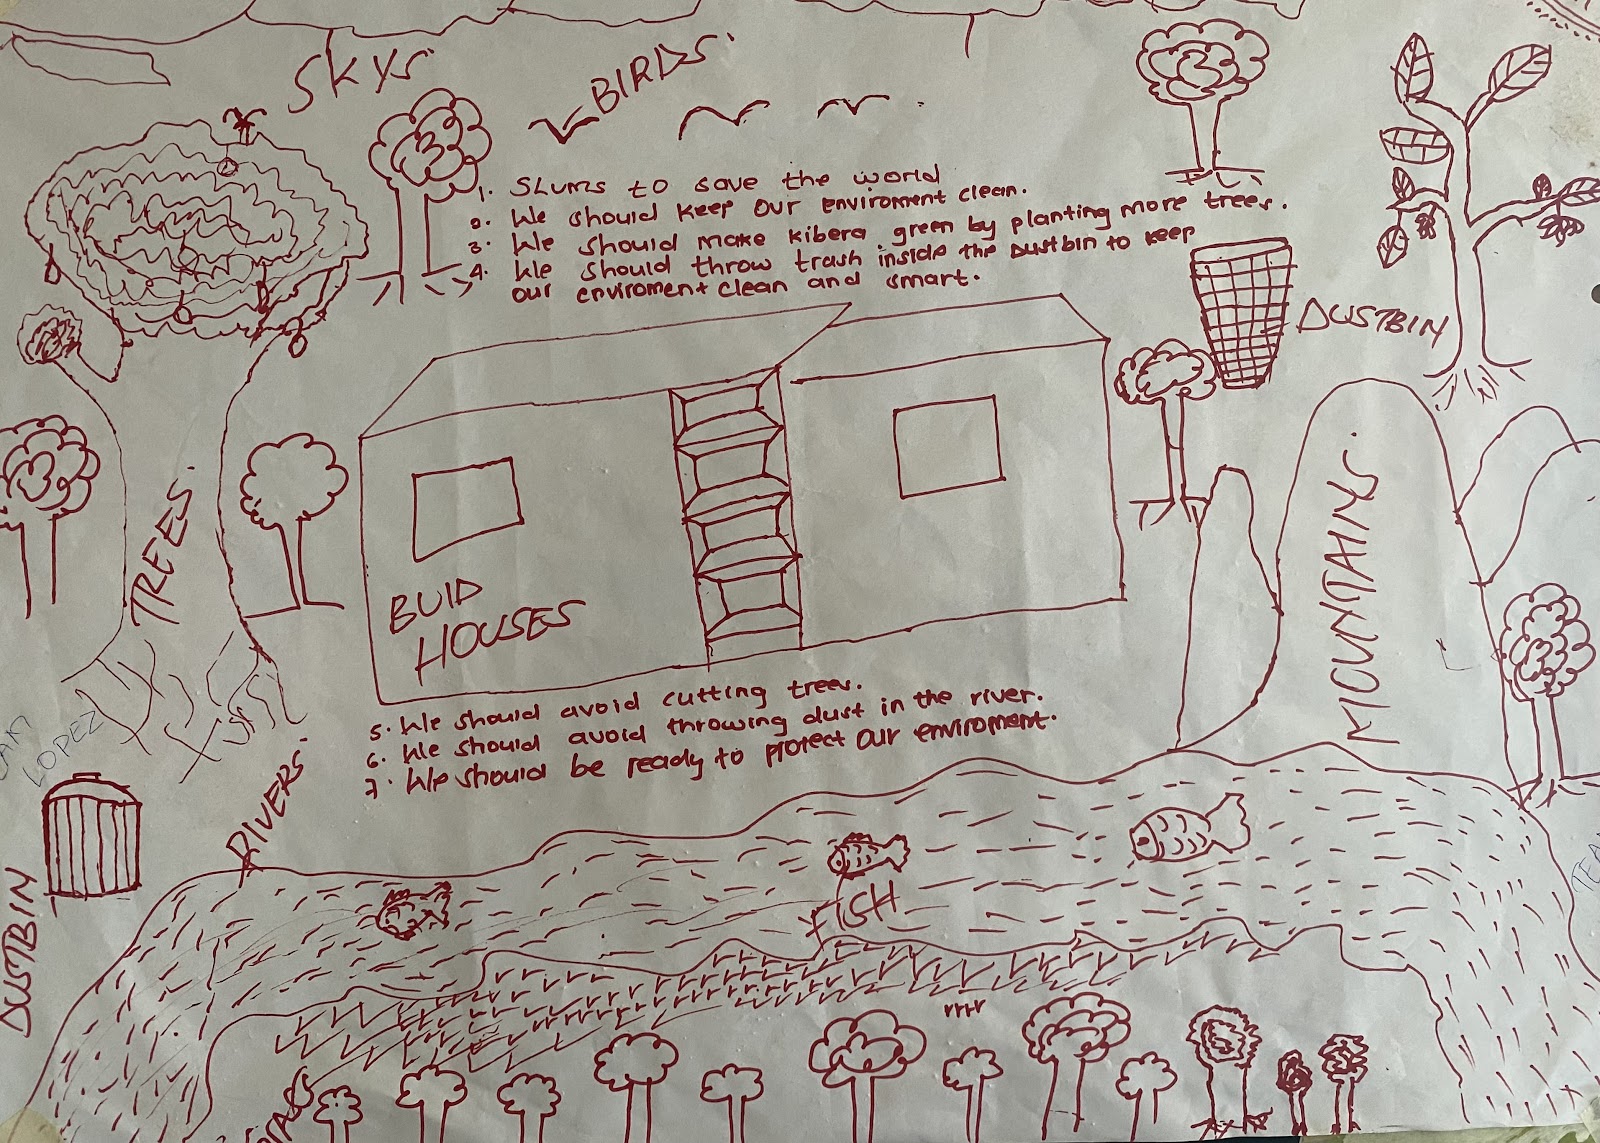 SKYS
BIRDS.
1. SLUMS to save the world
2. We should keep our enviroment clean.
3. We should make kibera green by planting more trees.
4. We should throw trash inside the Dustbin to keep
our enviroment clean and smart.
DUSTBIN
TREES.
BUID
HOUSES
MOUNTAINS.
5. We should avoid cutting trees.
6. We should avoid throwing dust in the river.
7. We should be ready to protect our enviroment.
LOPEZ
RIVERS.
DUSTBIN
FISH